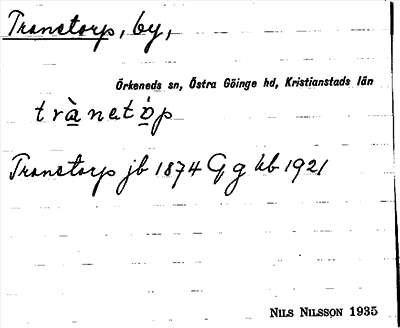 Transtorp, by,
Örkeneds sn, Östra Göinge hd, Kristianstads län
trànetòp
Transtorp jb 1874 Gg hb 1921
NILS NILSSON 1935